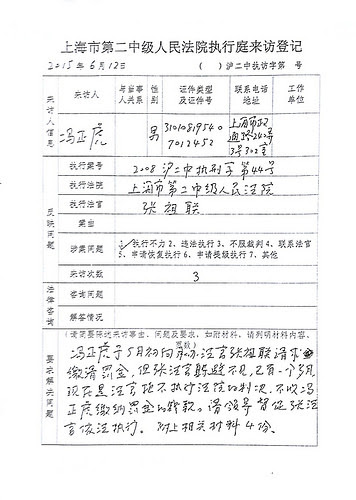 上海市第二中级人民法院执行庭来访登记
2015年6月12日 （ ）沪二中执访字第 号
来访人信息
来访人 与当事人关系 性别 证件类型及证件号 联系电话地址 工作单位
冯正虎 男 310108195407012452 上海市政通路240弄3号302室
反映问题
执行案号 2008沪二中执刑字第44号
执行法院 上海市第二中级人民法院
执行法官 张祖联
案由
涉案问题 1、执行不力 2、违法执行 3、不服裁判 4、联系法官
5、申请恢复执行 6、申请提级执行 7、其他
来访次数 3
法律咨询
咨询问题
解答情况
要求解决问题
（请简要陈述来访事由、问题及要求，如附材料，请列明材料内容、页数）
冯正虎于5月初向 法官张祖联请求
缴清罚金，但张法官躲避不见，已有一个多月，
现在是法官拒不执行法院的判决，不收冯
正虎缴纳罚金的钱款。请领导督促张法
官依法执行。附上相关材料4份。